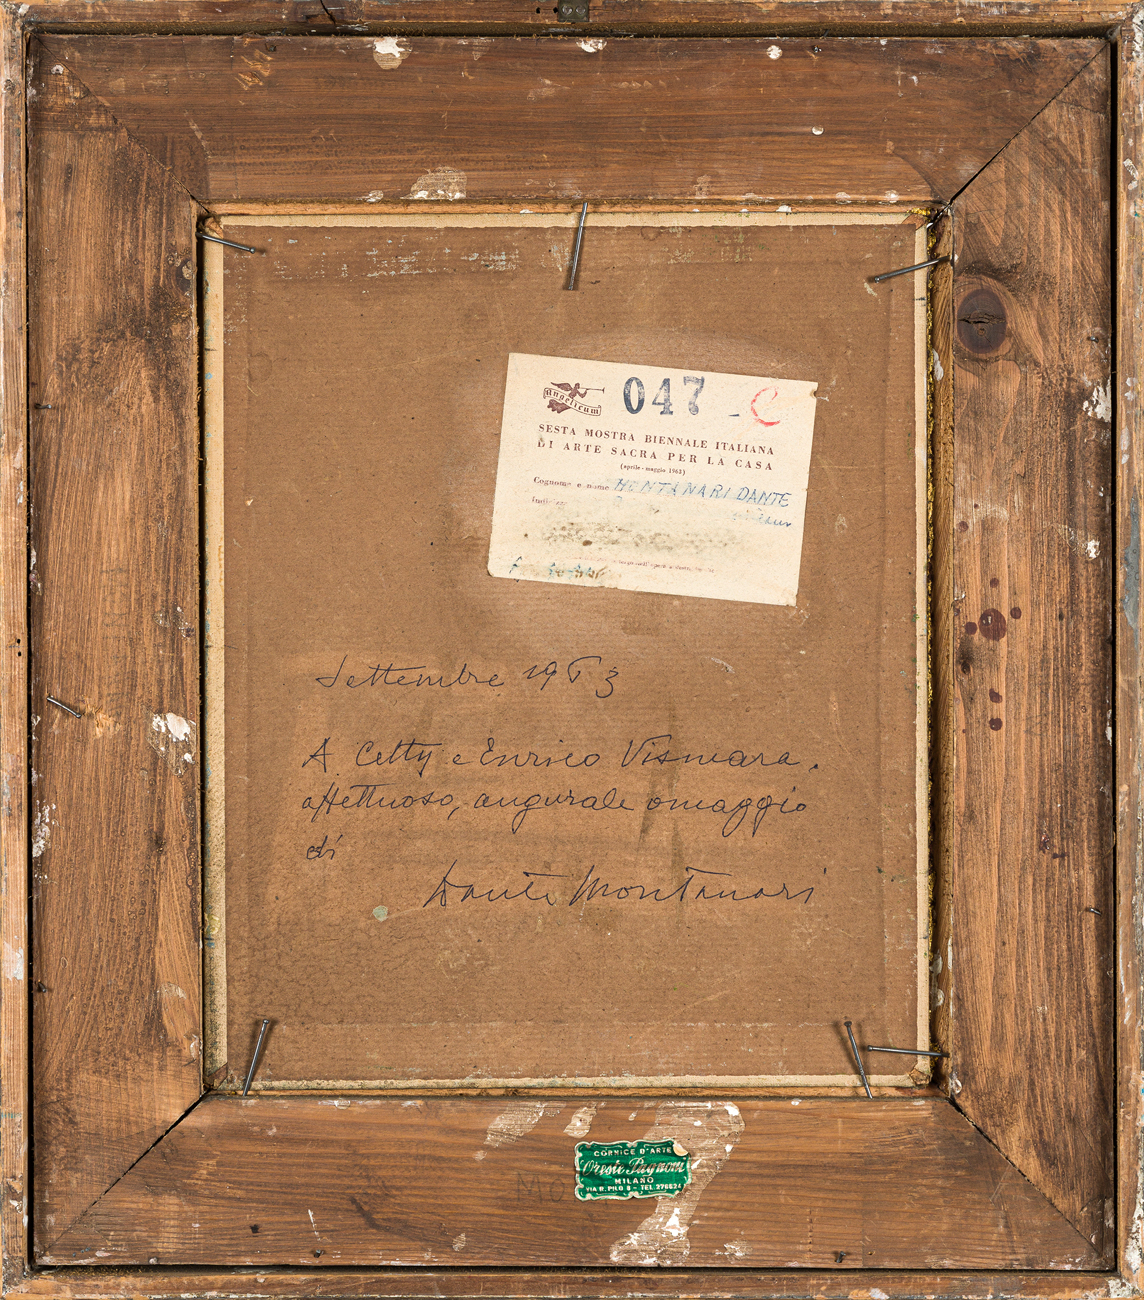 Angelicum
047 - C
SESTA MOSTRA BIENNALE ITALIANA
DI ARTE SACRA PER LA CASA
(aprile - maggio 1963)
Cognome e nome MONTANARI DANTE
Settembre 1963
A Cetty e Enrico Vismara,
affettuoso, augurale omaggio
di
Dante Montanari
CORNICE D'ARTE
Oreste Pagnoni
MILANO
VIA R. PILO 8 - TEL. 276624
MO